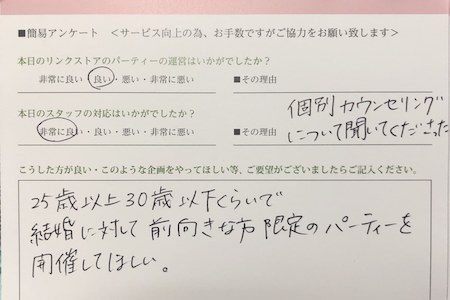 ■簡易アンケート ＜サービス向上の為、お手数ですがご協力をお願い致します＞
本日のリンクストアのパーティーの運営はいかがでしたか？
非常に良い・良い・悪い・非常に悪い ■その理由
本日のスタッフの対応はいかがでしたか？
非常に良い・良い・悪い・非常に悪い ■その理由
個別カウンセリング
について聞いてくださった
こうした方が良い・このような企画をやってほしい等、ご要望がございましたらご記入ください。
25歳以上30歳以下くらいで
結婚に対して前向きな方限定のパーティーを
開催してほしい。